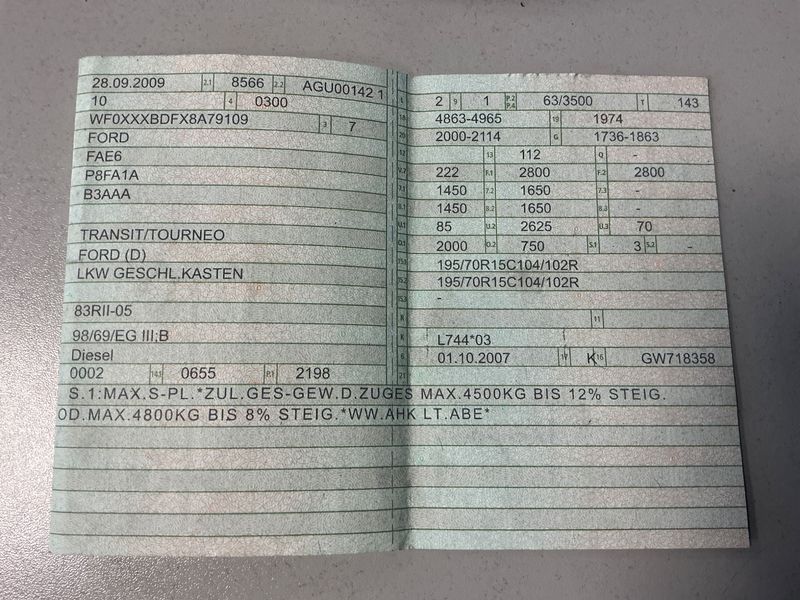 28.09.2009 2.1 8566 2.2 AGU00142 1
10 4 0300
WF0XXXBDFX8A79109 3 7
FORD
FAE6
P8FA1A
B3AAA
TRANSIT/TOURNEO
FORD (D)
LKW GESCHL.KASTEN
83RII-05
98/69/EG III;B
Diesel
0002 14.1 0655 P.1 2198
L 2 9 1 P.2 P.4 63/3500 T 143
18 4863-4965 19 1974
20 2000-2114 G 1736-1863
12 13 112 Q -
V.7 222 F.1 2800 F.2 2800
7.1 1450 7.2 1650 7.3 -
8.1 1450 8.2 1650 8.3 -
U.1 85 U.2 2625 U.3 70
O.1 2000 O.2 750 S.1 3 S.2 -
15.1 195/70R15C104/102R
15.2 195/70R15C104/102R
15.3 -
R 11
K L744*03
6 01.10.2007 17 K 16 GW718358
21
S.1:MAX.S-PL.*ZUL.GES-GEW.D.ZUGES MAX.4500KG BIS 12% STEIG.
OD.MAX.4800KG BIS 8% STEIG.*WW.AHK LT.ABE*